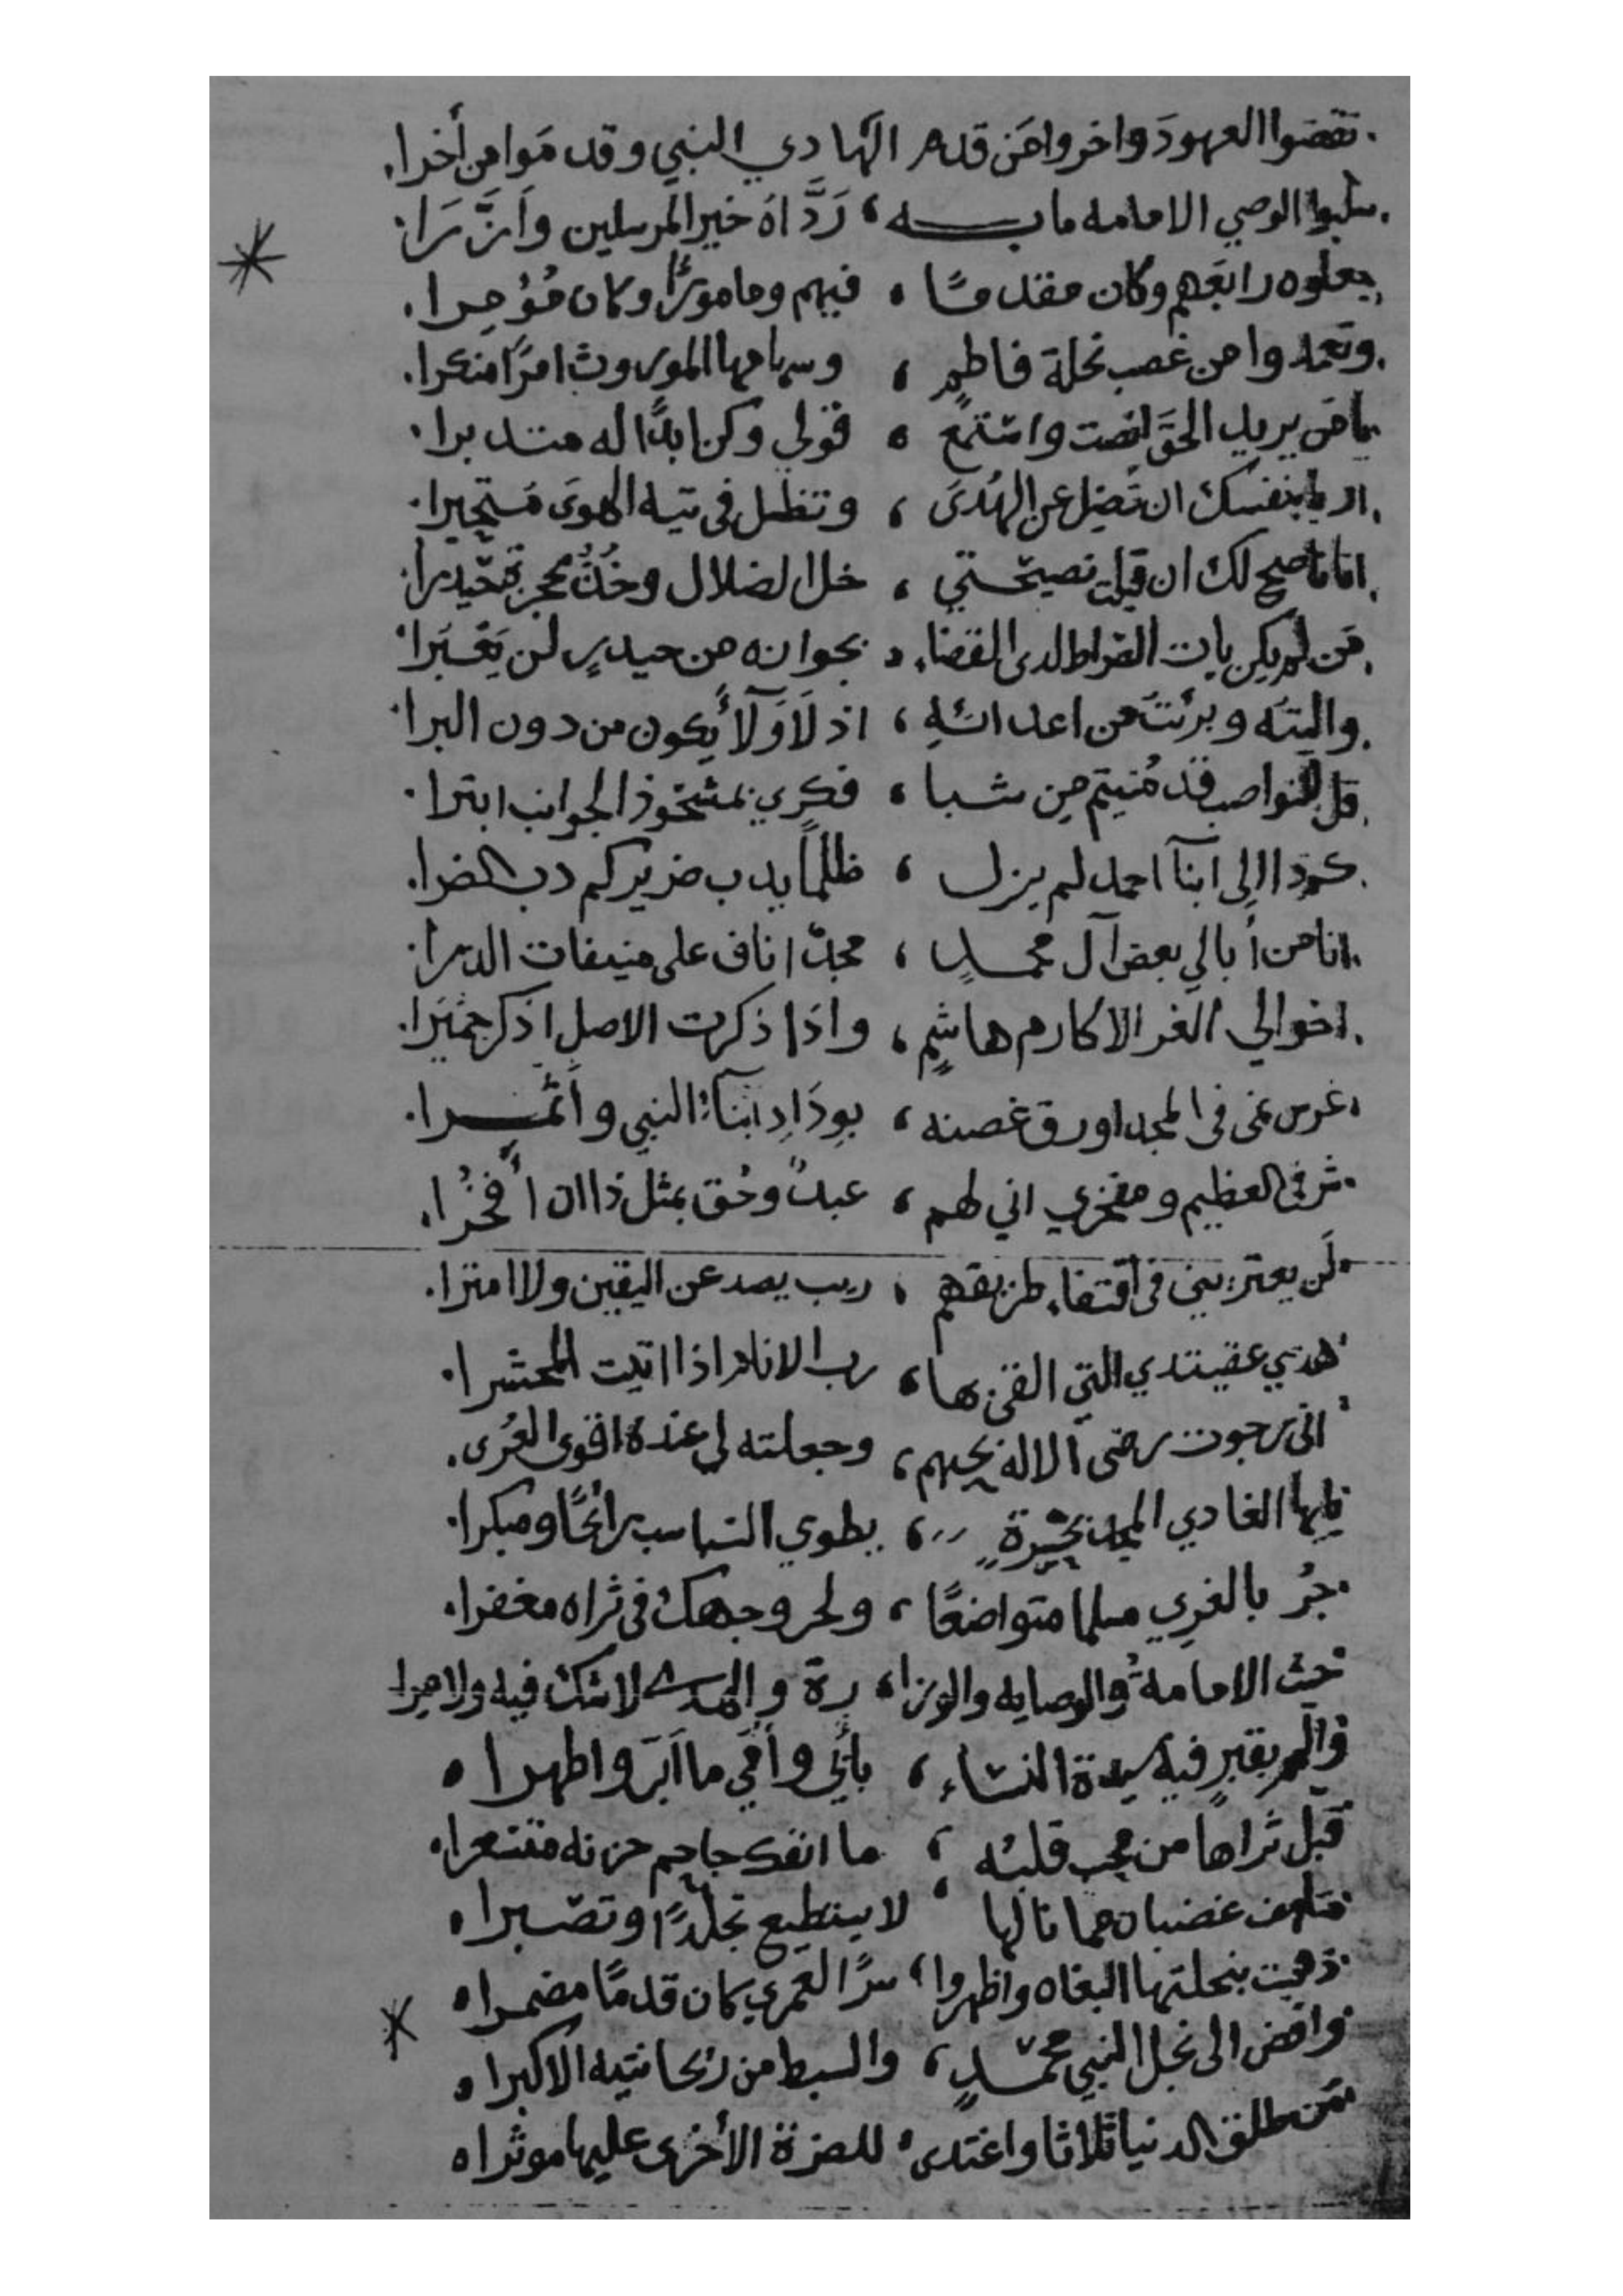 نقضوا العهود واخروا من قدم الهادي النبي وقد موا من أخرا
سلبوا الوصي الامامه ما به ، رَدَّاهُ خير المرسلين وأزَّرا
جعلوه رابعهم وكان مقدمًا ، فيهم ومامورًا وكان مُؤمرا
وتعمدوا من غصب نحلة فاطمٍ ، وسهامها الموروث امرًا منكرا
يا من يريد الحق انصت واستمع ، قولي وكن ابدًا له متدبرا
اربا بنفسك ان تضل عن الهُدَى ، وتظل في تيه الهوى متحيرا
انا ناصح لك ان قبلت نصيحتي ، خل الضلال وخُذ بحجزة حيدرا
من لم يكن يات الصراط لدى القضاء ، بجوازه من حيدرٍ لن يَعبُرا
واليته وبرئتُ من اعدائهِ ، اذ لَا وَلَآ يكون من دون البرا
قل للنواصب قد مُنيتم من شبا ، فكري بمشحوذ الجوانب ابترا
كم ذا الى ابنآ احمد لم يزل ، ظلمًا يدب ضريركم دب الضرا
انا من أبا لي بغض آل محمدٍ ، مجدٌ اناف على منيفات الذرا
اخوالي الغر الاكارم هاشمٍ ، واذا ذكرت الاصل اذكر حميرا
غرس نمى في المجد اورق غصنه ، بودَادِ ابنآء النبي وأثمرا
شرفي العظيم ومفخري اني لهم ، عبدٌ وحُق بمثل ذا ان أفخرا
لَن يعتريني في اقتفاء طريقهم ، ريب يصد عن اليقين ولا امترا
هذي عقيدتي التي القى بها ، رب الانام اذا اتيت المحشرا
اني رجوت رضى الاله بحبهم ، وجعلته لي عنده اقوى العُرى
يايها الغادي المجد بجسرةٍ ، يطوي السباسب رائحًا ومبكرا
جُز بالغري مسلما متواضعًا ، ولحر وجهك في ثراه معفرا
حيث الامامةُ والوصايه والوزا ، رة والهدى لا شك فيه ولا مِرا
والمم بقبرٍ فيه سيدة النساء ، بأبي وأمي ما ابرَّ واطهرا
قبّل ثراها من محب قلبُه ، ما انفك جاحم حزنه متسعرا
متلهف غضبان مما نالها ، لا يستطيع تجلدًا وتصبرا
ذهبت بنحلتها البغاه واظهروا ، سرًا لعمري كان قدمًا مضمرا
وافض الى نجل النبي محمدٍ ، والسبط من ريحانتيه الاكبرا
من طلق الدنيا ثلاثا واغتدى ، للضرة الأخرى عليها موثرا